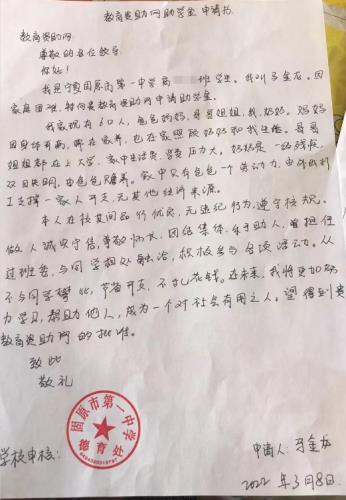 教育资助网助学金申请书
教育资助网:
尊敬的各位领导
你好!
我是宁夏固原市第一中学高 班学生。我叫马金龙。因
家庭困难,特向贵教育资助网申请助学金。
我家现有6口人,爸爸妈妈,哥哥姐姐,我,奶奶。妈妈
因身体有病,都在家养,也在家照顾奶奶和我生活。哥哥
姐姐都在上大学,家中生活费,学费压力大。奶奶是一级残疾,
双目失明,由爸爸赡养。家中只有爸爸一个劳动力,由他以打
工支撑一家人开支,无其他经济来源。
本人在校其间品行优良,无违纪行为,遵守校规。
做人诚实守信,尊敬师长,团结集体,乐于助人,曾担任
过班委,与同学相处融洽,积极参与各项活动。从
不与同学攀比,节省开支,不乱花钱。在未来,我将更加努
力学习,帮助他人,成为一个对社会有用之人。望得到贵
教育资助网的批准。
致此
敬礼
固原市第一中学
德育处
学校审核:
申请人:马金龙
2022年3月8日